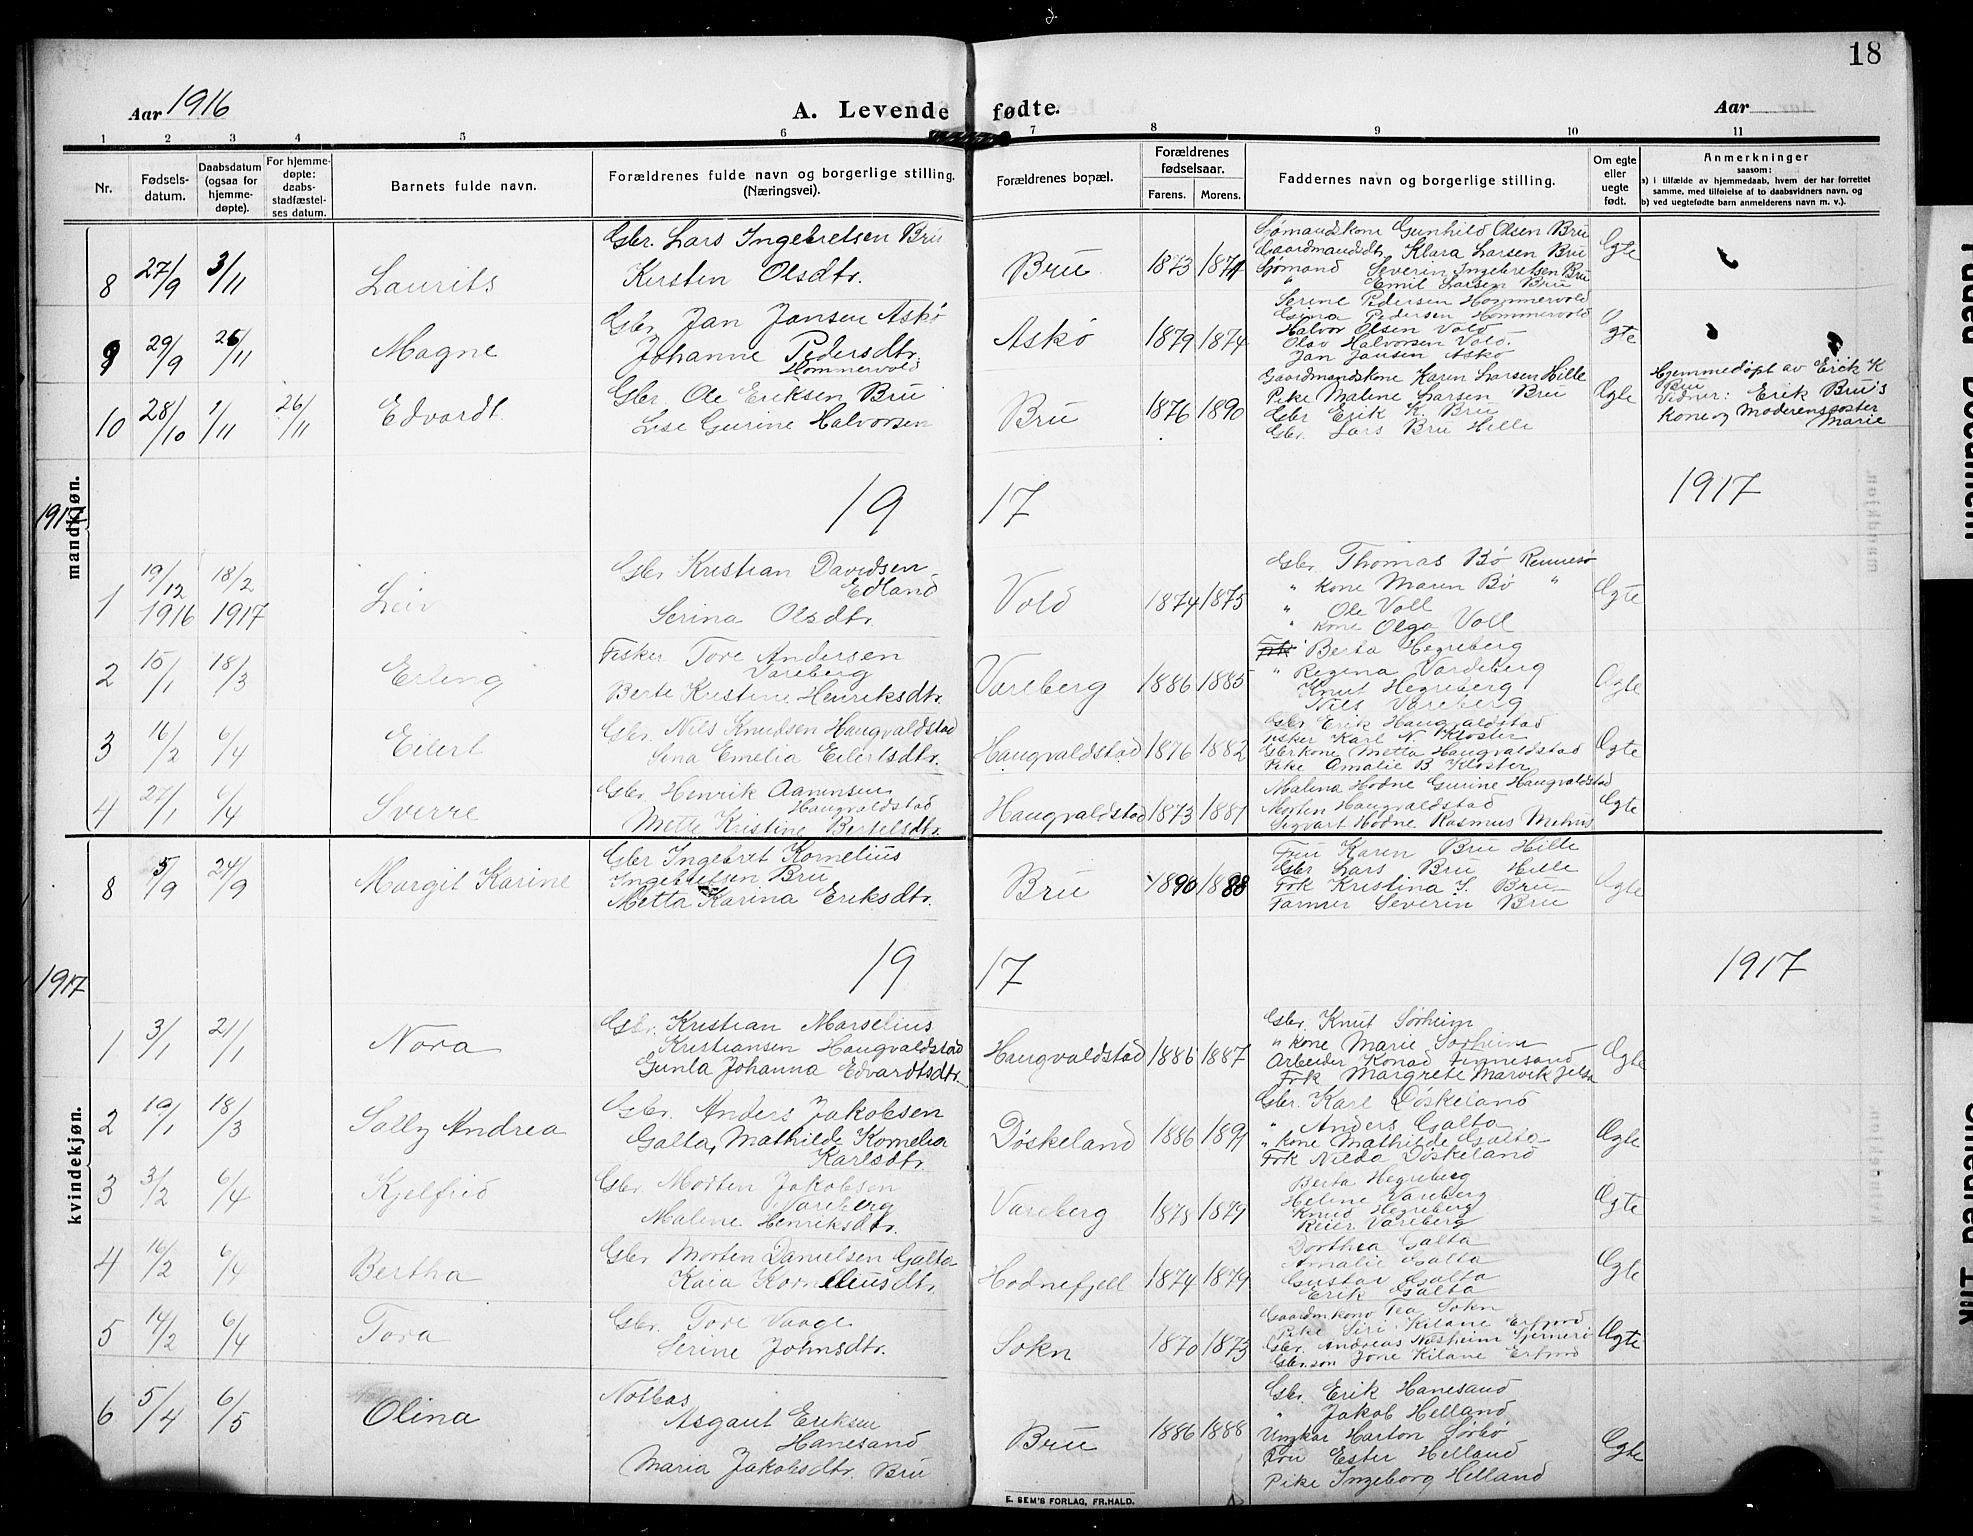 18
Aar 1916
A. Levende fødte.
Aar
1 2 3 4 5 6 7 8 9 10 11
Nr.
Fødsels-
datum.
Daabsdatum
(ogsaa for
hjemme-
døpte).
For hjemme-
døpte:
daabs-
stadfæstel-
ses datum.
Barnets fulde navn.
Forældrenes fulde navn og borgerlige stilling.
(Næringsvei).
Forældrenes bopæl.
Forældrenes
fødselsaar.
Farens. Morens.
Faddernes navn og borgerlige stilling.
Om egte
eller
uegte
født.
Anmerkninger
saasom:
a) i tilfælde av hjemmedaab, hvem der har forrettet
samme, med tilføielse af to daabsvidners navn, og
b) ved uegtefødte barn anmelderens navn m. v.).
mandkjøn.
8 27/9 3/11 Laurits
Gbr. Lars Ingebretsen Bru
Kirsten Olsdtr.
Bru 1873 1874
Sømandskone Gunhild Olsen Bru
Gaardmandsdt. Klara Larsen Bru
Sømand Severin Ingebretsen Bru
" Emil Larsen Bru
Egte
9 29/9 26/11 Magne
Gbr. Jan Jansen Askø
Johanne Pedersdtr.
Hommervold
Askø 1879 1874
Serine Pedersen Hommervold
Gina Pedersen Hommervold
Halvor Olsen Vold
Olav Halvorsen Vold
Jan Jansen Askø
Egte
10 28/10 1/11 26/11 Edvardt
Gbr. Ole Eriksen Bru
Lise Gurine Halvorsen
Bru 1876 1890
Gaardmandskone Karen Larsen Hille
Pike Malene Larsen Bru
Gbr Erik K. Bru
Gbr. Lars Bru Hille
Egte
Hjemmedøpt av Erick K
Bru
Vidner: Erik Bru's
Kone og Moderens søster
Marie
1917
19 17 1917
1 19/12 1916 18/2 1917 Leiv
Gbr Kristian Davidsen
Edland
Serina Olsdtr.
Vold 1874 1875
Gbr. Thomas Bø Rennesø
" Kone Maren Bø "
" Ole Voll
" Kone Olga Voll
Egte
2 15/1 18/3 Erling
Fisker Tore Andersen
Vareberg
Berte Kristine Henriksdtr.
Vareberg 1886 1885
Frk. Berta Hegreberg
" Regina Vardeberg
Knut Hegreberg
Nils Vareberg
Egte
3 16/2 6/4 Eilert
Gbr. Nils Knudsen Haugvaldstad
Sina Emelia Eilertsdtr.
Haugvaldstad 1876 1882
Gbr Erik Haugvaldstad
Fisker Karl N. Kloster
Gbrkone Metta Haugvaldstad
Pike Amalie B Kloster
Egte
4 27/1 6/4 Sverre
Gbr. Henrik Aanensen
Haugvaldstad
Mette Kristine Bertelsdtr.
Haugvaldstad 1873 1881
Malena Hodne Gurine Haugvaldstad
Morten Haugvaldstad
Sigvart Hodne Rasmus
Egte
8 5/9 24/9 Margit Karine
Gbr Ingebret Kornelius
Ingebretsen Bru
Metta Karina Eriksdtr.
Bru 1890 1888
Fru Karen Bru Hille
Gbr Lars Bru Hille
Frk Kristina S. Bru
Farmer Severin Bru
Egte
1917
19 17 1917
kvindekjøn.
1 3/1 21/1 Nora
Gbr. Kristian Marselius
Kristiansen Haugvaldstad
Gunla Johanna Edvardtsdtr.
Haugvaldstad 1886 1887
Gbr. Knut Sørheim
" Kone Marie Sørheim
Arbeider Konad Finnesand
Frk Margrete Marvik Jelsa
Egte
2 19/1 18/3 Solly Andrea
Gbr. Anders Jakobsen
Galta, Mathilde Kornelia
Karlsdtr.
Døskeland 1886 1891
Gbr. Karl Døskeland
" Anders Galta
" Kone Mathilde Galta
Frk Nilda Døskeland
Egte
3 3/2 6/4 Kjelfrid
Gbr. Morten Jakobsen
Vareberg
Malene Henriksdtr.
Vareberg 1875 1879
Berta Hegreberg
Heline Vareberg
Knud Hegreberg
Reier Vareberg
Egte
4 16/2 6/4 Bertha
Gbr Morten Danielsen Galta
Kaia Korneliusdtr.
Hodnefjell 1874 1879
Dorthea Galta
Amalie Galta
Gustav Galta
Erik Galta
Egte
5 14/2 6/4 Tora
Gbr. Tore Vaage
Serine Johnsdtr.
Sokn 1870 1873
Gaardmkone Tea Sokn
Pike Siri Kilane Erfjord
Gbr. Andreas Nesheim Sjernerø
Gbr.søn Jone Kilane Erfjord
Egte
6 5/4 6/5 Olina
Notbas
Asgaut Eriksen
Hanesand
Maria Jakobsdtr. Bru
Bru 1886 1888
Gbr. Erik Hanesand
" Jakob Helland
Ungkar Harton Sørbø
Fru Ester Helland
Pike Ingeborg Helland
Egte
E. SEM'S FORLAG, FR.HALD.